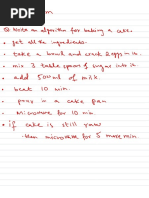 Write an algorithm for baking a cake.
• get all the ingredients.
• take a bowl and crack 2 eggs in it.
• mix 3 table spoons of sugar into it
• add 500ml of milk.
• beat 10 min.
• pour in a cake pan
• Microwave for 10 min.
• if cake is still raw
then microwave for 5 more min.